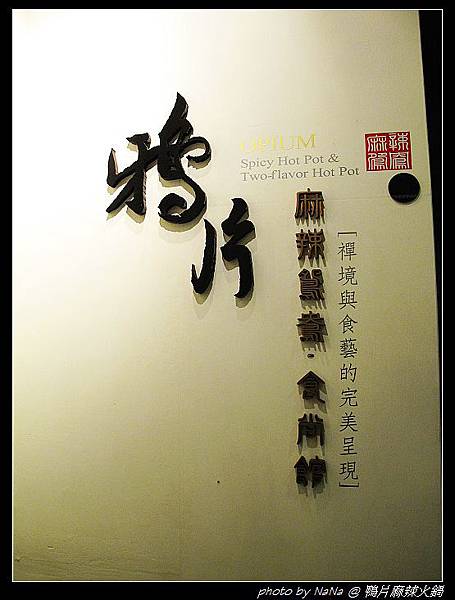 鴉片
OPIUM
Spicy Hot Pot &
Two-flavor Hot Pot
麻辣鴛鴦
麻辣鴛鴦·食尚館
「禪境與食藝的完美呈現」
photo by NaNa @ 鴨片麻辣火鍋